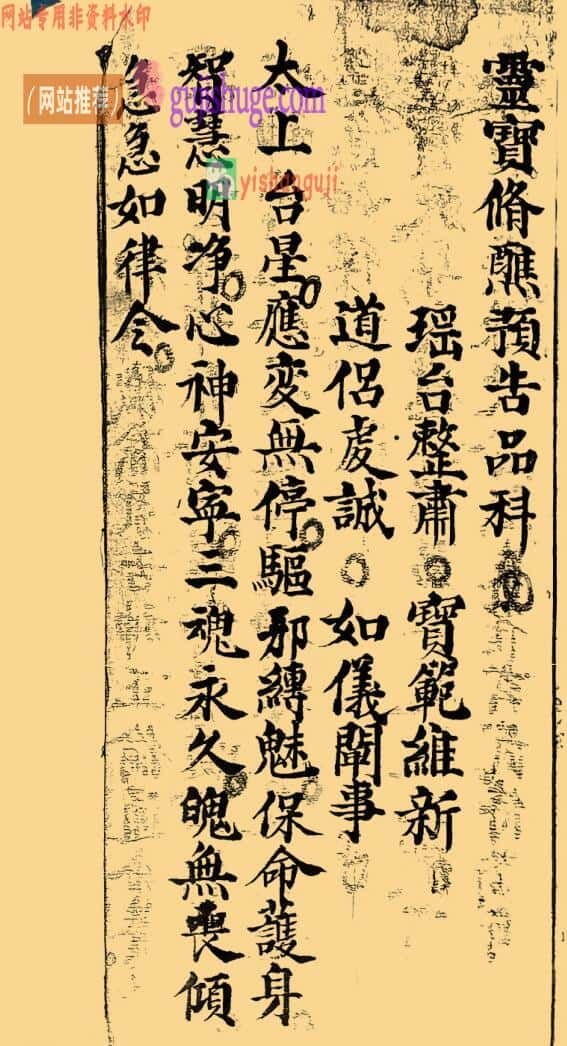 网站专用非资料水印
(网站推荐)
gujishuge.com
yishanguji
靈寳脩醮預告品科
瑶台整肅 寳範維新
道侣虔誠 如儀闡事
太上台星應变無停驅邪縛魅保命護身
智慧明净心神安寜三魂永久魄無喪傾
急急如律令